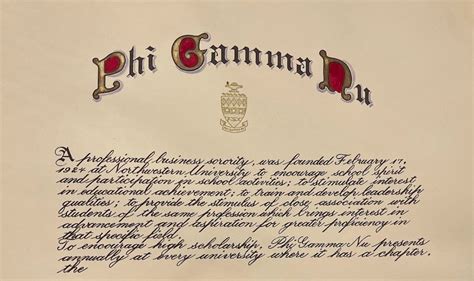 Phi Gamma Nu
A professional business sorority, was founded February 17,
1924 at Northwestern University to encourage school spirit
and participation in school activities; to stimulate interest
in educational achievement; to train and develop leadership
qualities; to provide the stimulus of close association with
students of the same profession which brings interest in
advancement and aspiration for greater proficiency in
that specific field.
To encourage high scholarship, Phi Gamma Nu presents
annually at every university where it has a chapter,
the